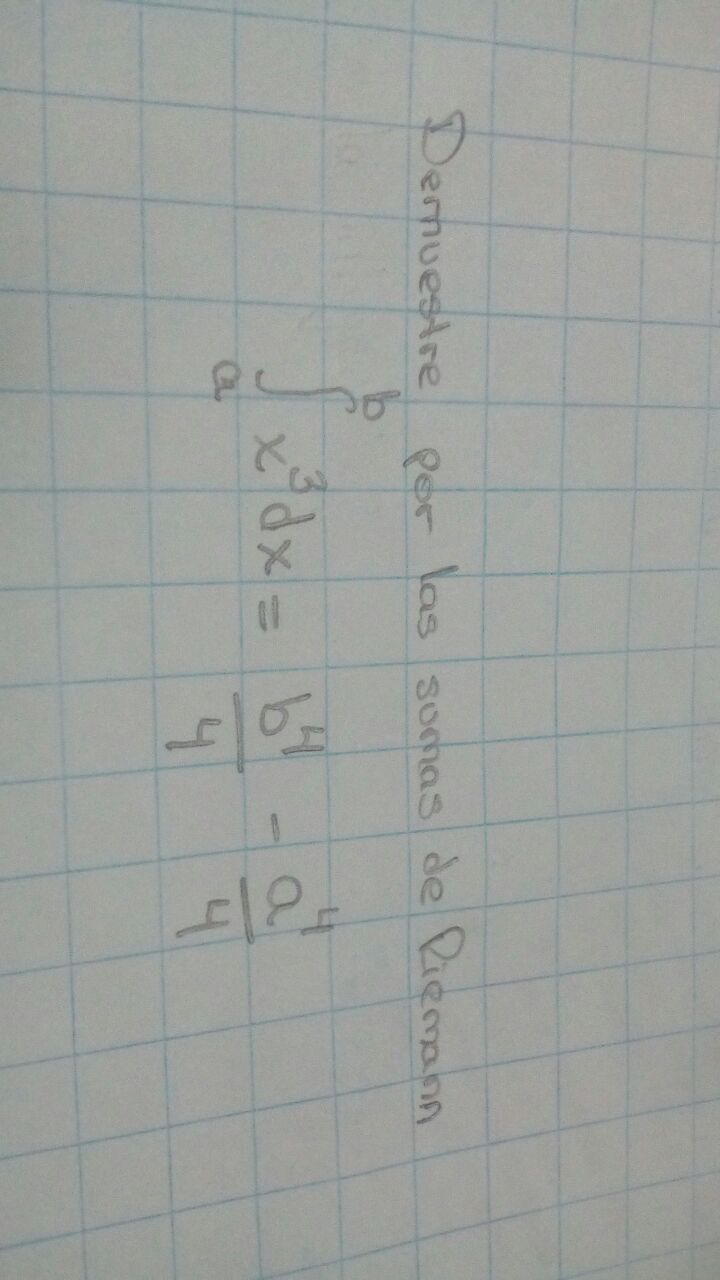 Demuestre por las sumas de Riemann
∫ₐᵇ x³dx = b⁴/4 - a⁴/4